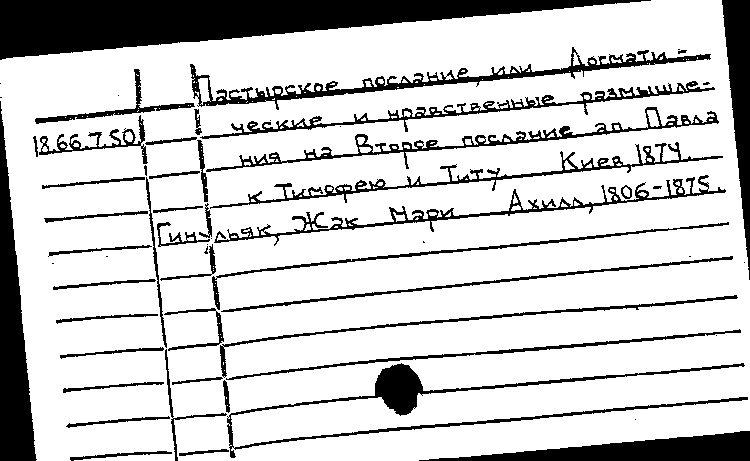 Пастырское послание, или Догмати-
18.66.7.50. ческие и нравственные размышле-
ния на Второе послание ап. Павла
к Тимофею и Титу. Киев, 1874.
Гинульяк, Жак Мари Ахилл, 1806-1875.